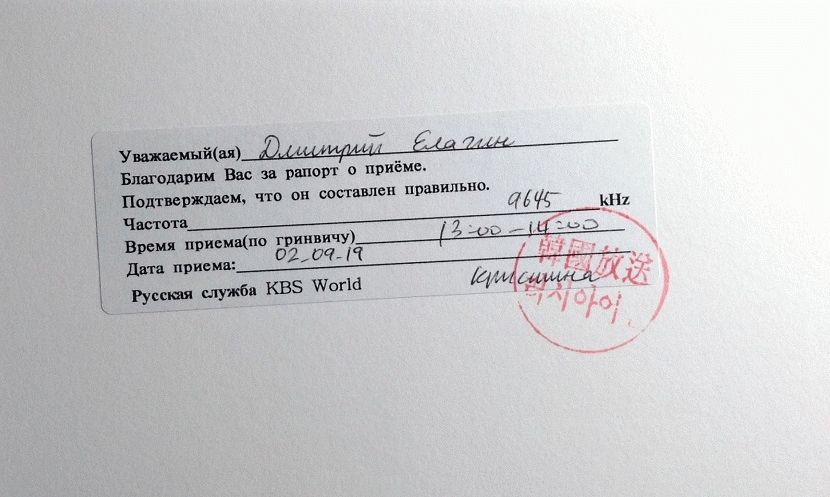 Уважаемый(ая) Дмитрий Елагин
Благодарим Вас за рапорт о приёме.
Подтверждаем, что он составлен правильно.
Частота 9645 kHz
Время приема(по гринвичу) 13=00-14=00
Дата приема: 02-09-19
Русская служба KBS World Кристина
韓國放送
러시아어